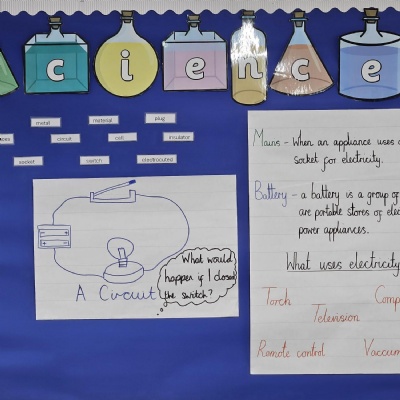 cience
metal
material
plug
circuit
cell
insulator
socket
switch
electrocuted
A Circuit
What would
happen if I closed
the switch?
Mains - When an appliance uses
socket for electricity.
Battery - a battery is a group of
are portable stores of
power appliances.
What uses electricity
Torch
Television
Remote control